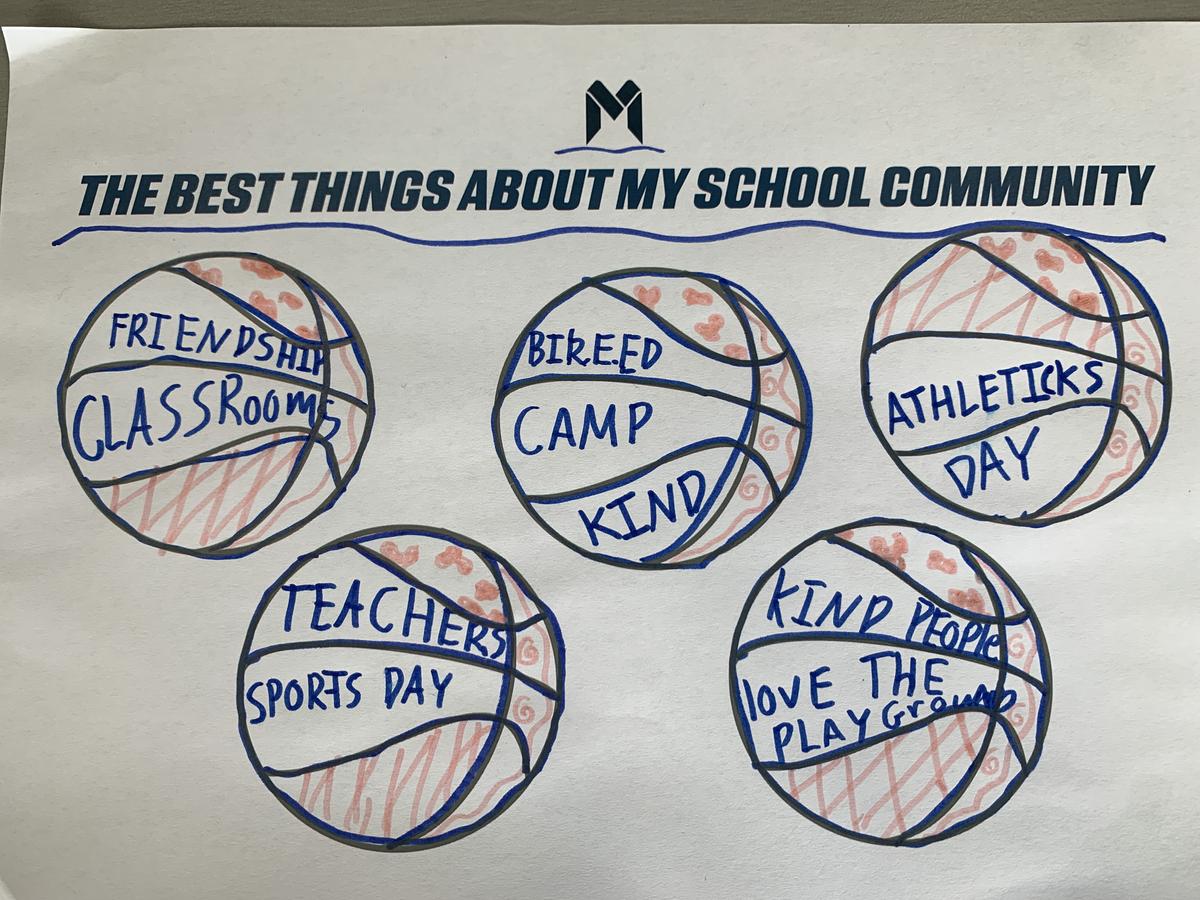 M
THE BEST THINGS ABOUT MY SCHOOL COMMUNITY
FRIENDSHIP
CLASSROOMS
BIKEED
CAMP
KIND
ATHLETICKS
DAY
TEACHERS
SPORTS DAY
KIND PEOPlE
lOVE THE
PLAYGrOUND